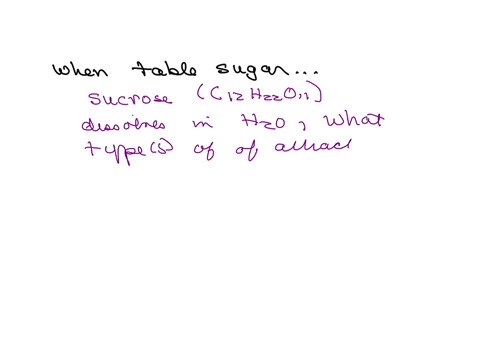 when table sugar...
sucrose (C12H22O11)
dissolves in H2O, what
type(s) of of attract